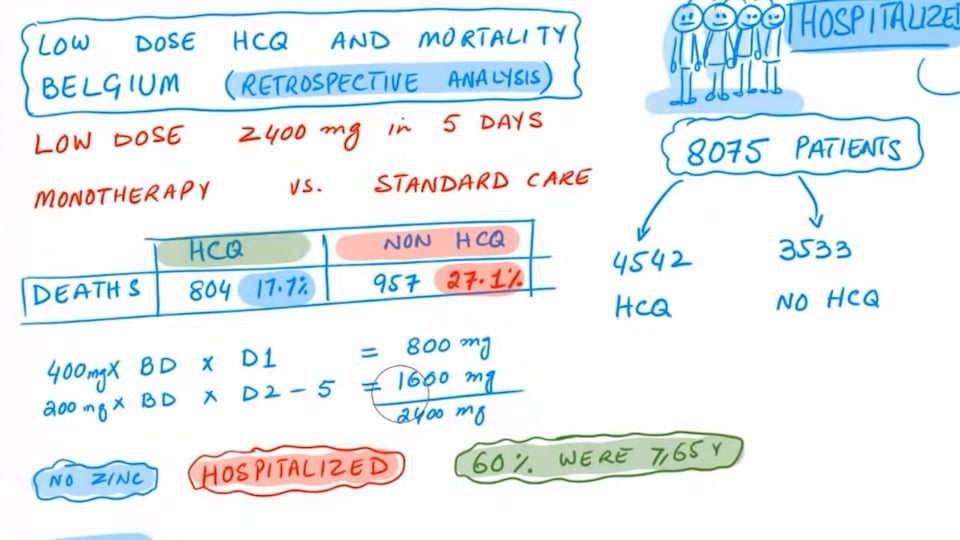 LOW DOSE HCQ AND MORTALITY
BELGIUM (RETROSPECTIVE ANALYSIS)
LOW DOSE 2400 mg in 5 DAYS
MONOTHERAPY VS. STANDARD CARE
HCQ NON HCQ
DEATHS 804 17.7% 957 27.1%
400mg X BD X D1 = 800 mg
200 mg X BD X D2 - 5 = 1600 mg
2400 mg
NO ZINC
HOSPITALIZED
60% WERE 7,65 Y
HOSPITALIZED
8075 PATIENTS
4542 3533
HCQ NO HCQ